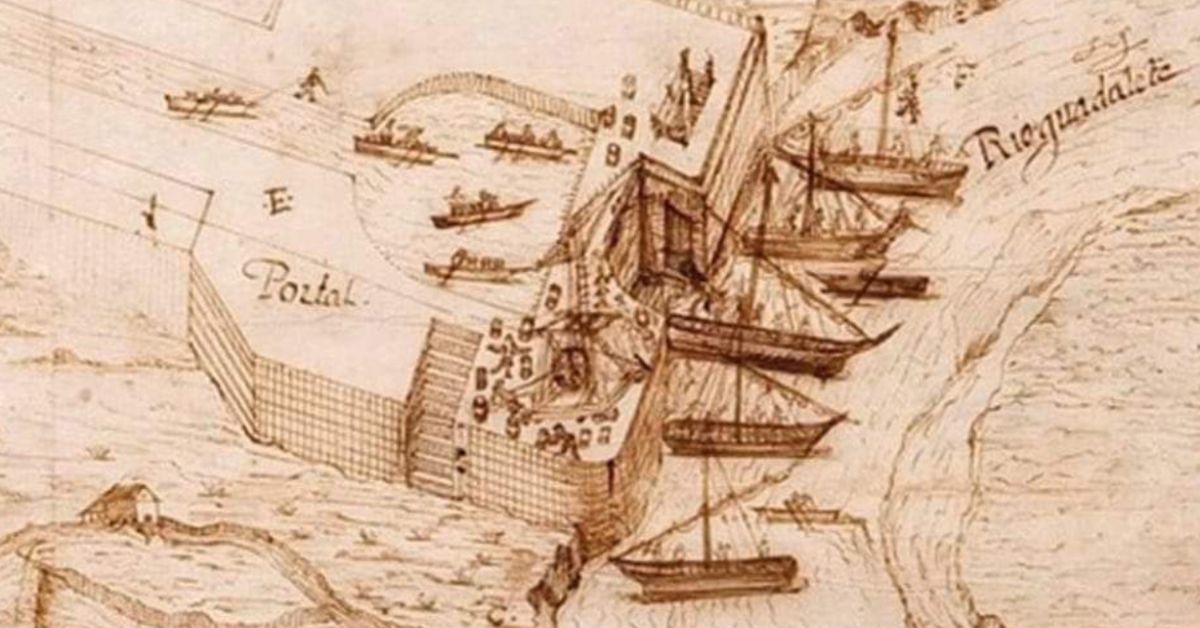 Rioguadalete
·E·
Portal.